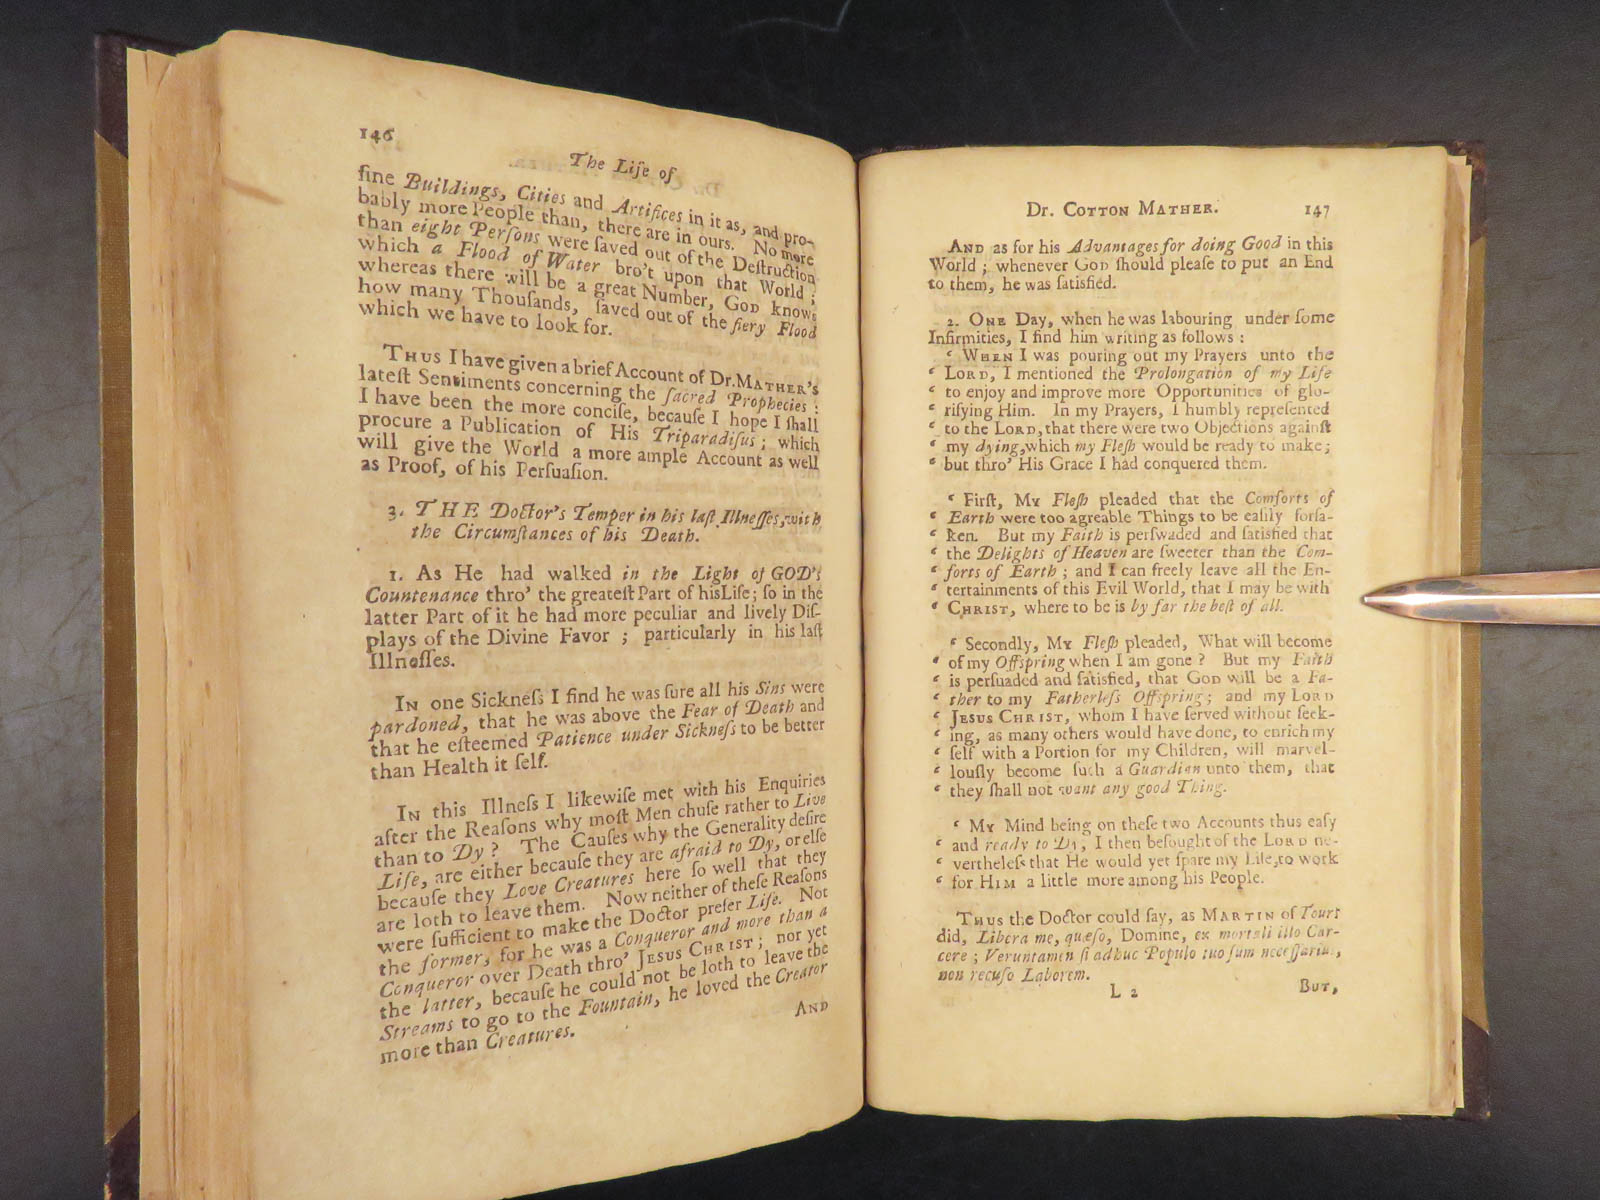 146
The Liſe of
fine Buildings, Cities and Artifices in it as, and pro-
bably more People than, there are in ours. No more
than eight Perſons were ſaved out of the Deſtruction
which a Flood of Water bro't upon that World ;
whereas there will be a great Number, GOD knows
how many Thouſands, ſaved out of the fiery Flood
which we have to look for.
THUS I have given a brief Account of Dr. MATHER's
lateſt Sentiments concerning the ſacred Prophecies :
I have been the more conciſe, becauſe I hope I ſhall
procure a Publication of His Triparadiſus ; which
will give the World a more ample Account as well
as Proof, of his Perſuaſion.
3. THE Doctor's Temper in his laſt Illneſſes, with
the Circumſtances of his Death.
1. As He had walked in the Light of GOD's
Countenance thro' the greateſt Part of his Life; ſo in the
latter Part of it he had more peculiar and lively Diſ-
plays of the Divine Favor ; particularly in his laſt
Illneſſes.
IN one Sickneſs I find he was ſure all his Sins were
pardoned, that he was above the Fear of Death and
that he eſteemed Patience under Sickneſs to be better
than Health it ſelf.
IN this Illneſs I likewiſe met with his Enquiries
after the Reaſons why moſt Men chuſe rather to Live
than to Dy ? The Cauſes why the Generality deſire
Life, are either becauſe they are afraid to Dy, or elſe
becauſe they Love Creatures here ſo well that they
are loth to leave them. Now neither of theſe Reaſons
were ſufficient to make the Doctor prefer Life. Not
the former, for he was a Conqueror and more than a
Conqueror over Death thro' JESUS CHRIST ; nor yet
the latter, becauſe he could not be loth to leave the
Streams to go to the Fountain, he loved the Creator
more than Creatures.
AND
Dr. COTTON MATHER. 147
AND as for his Advantages for doing Good in this
World ; whenever GOD ſhould pleaſe to put an End
to them, he was ſatisfied.
2. ONE Day, when he was labouring under ſome
Infirmities, I find him writing as follows :
‘ WHEN I was pouring out my Prayers unto the
‘ LORD, I mentioned the Prolongation of my Life
‘ to enjoy and improve more Opportunities of glo-
‘ rifying Him. In my Prayers, I humbly repreſented
‘ to the LORD, that there were two Objections againſt
‘ my dying, which my Fleſh would be ready to make ;
‘ but thro' His Grace I had conquered them.
‘ Firſt, MY Fleſh pleaded that the Comforts of
‘ Earth were too agreable Things to be eaſily forſa-
‘ ken. But my Faith is perſwaded and ſatisfied that
‘ the Delights of Heaven are ſweeter than the Com-
‘ forts of Earth ; and I can freely leave all the En-
‘ tertainments of this Evil World, that I may be with
‘ CHRIST, where to be is by far the beſt of all.
‘ Secondly, MY Fleſh pleaded, What will become
‘ of my Offspring when I am gone ? But my Faith
‘ is perſuaded and ſatisfied, that GOD will be a Fa-
‘ ther to my Fatherleſs Offspring ; and my LORD
‘ JESUS CHRIST, whom I have ſerved without ſeek-
‘ ing, as many others would have done, to enrich my
‘ ſelf with a Portion for my Children, will marvel-
‘ louſly become ſuch a Guardian unto them, that
‘ they ſhall not want any good Thing.
‘ MY Mind being on theſe two Accounts thus eaſy
‘ and ready to Dy ; I then beſought of the LORD ne-
‘ vertheleſs that He would yet ſpare my Life, to work
‘ for HIM a little more among his People.
THUS the Doctor could ſay, as MARTIN of Tours
did, Libera me, quæſo, Domine, ex mortali illo Car-
cere ; Veruntamen ſi adhuc Populo tuo ſum neceſſarius,
non recuſo Laborem.
L 2 BUT,